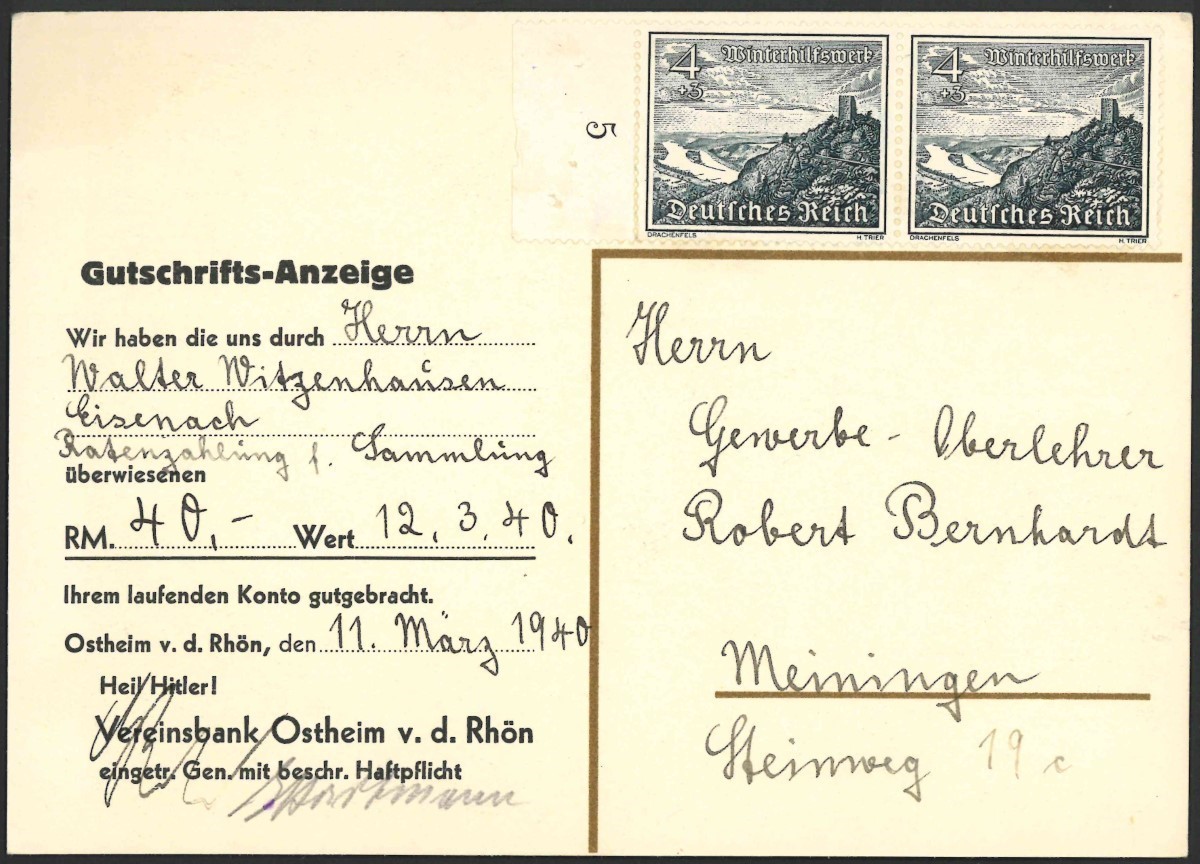 4 Winterhilfswerk
+3
Deutsches Reich
DRACHENFELS H. TRIER
4 Winterhilfswerk
+3
Deutsches Reich
DRACHENFELS H. TRIER
5
Gutschrifts-Anzeige
Wir haben die uns durch Herrn
Walter Witzenhausen
Eisenach
Ratenzahlung f. Sammlung
überwiesenen
RM. 40,- Wert 12.3.40.
Ihrem laufenden Konto gutgebracht.
Ostheim v. d. Rhön, den 11. März 1940
Heil Hitler!
Vereinsbank Ostheim v. d. Rhön
eingetr. Gen. mit beschr. Haftpflicht
Herrn
Gewerbe - Oberlehrer
Robert Bernhardt
Meiningen
Steinweg 19 c